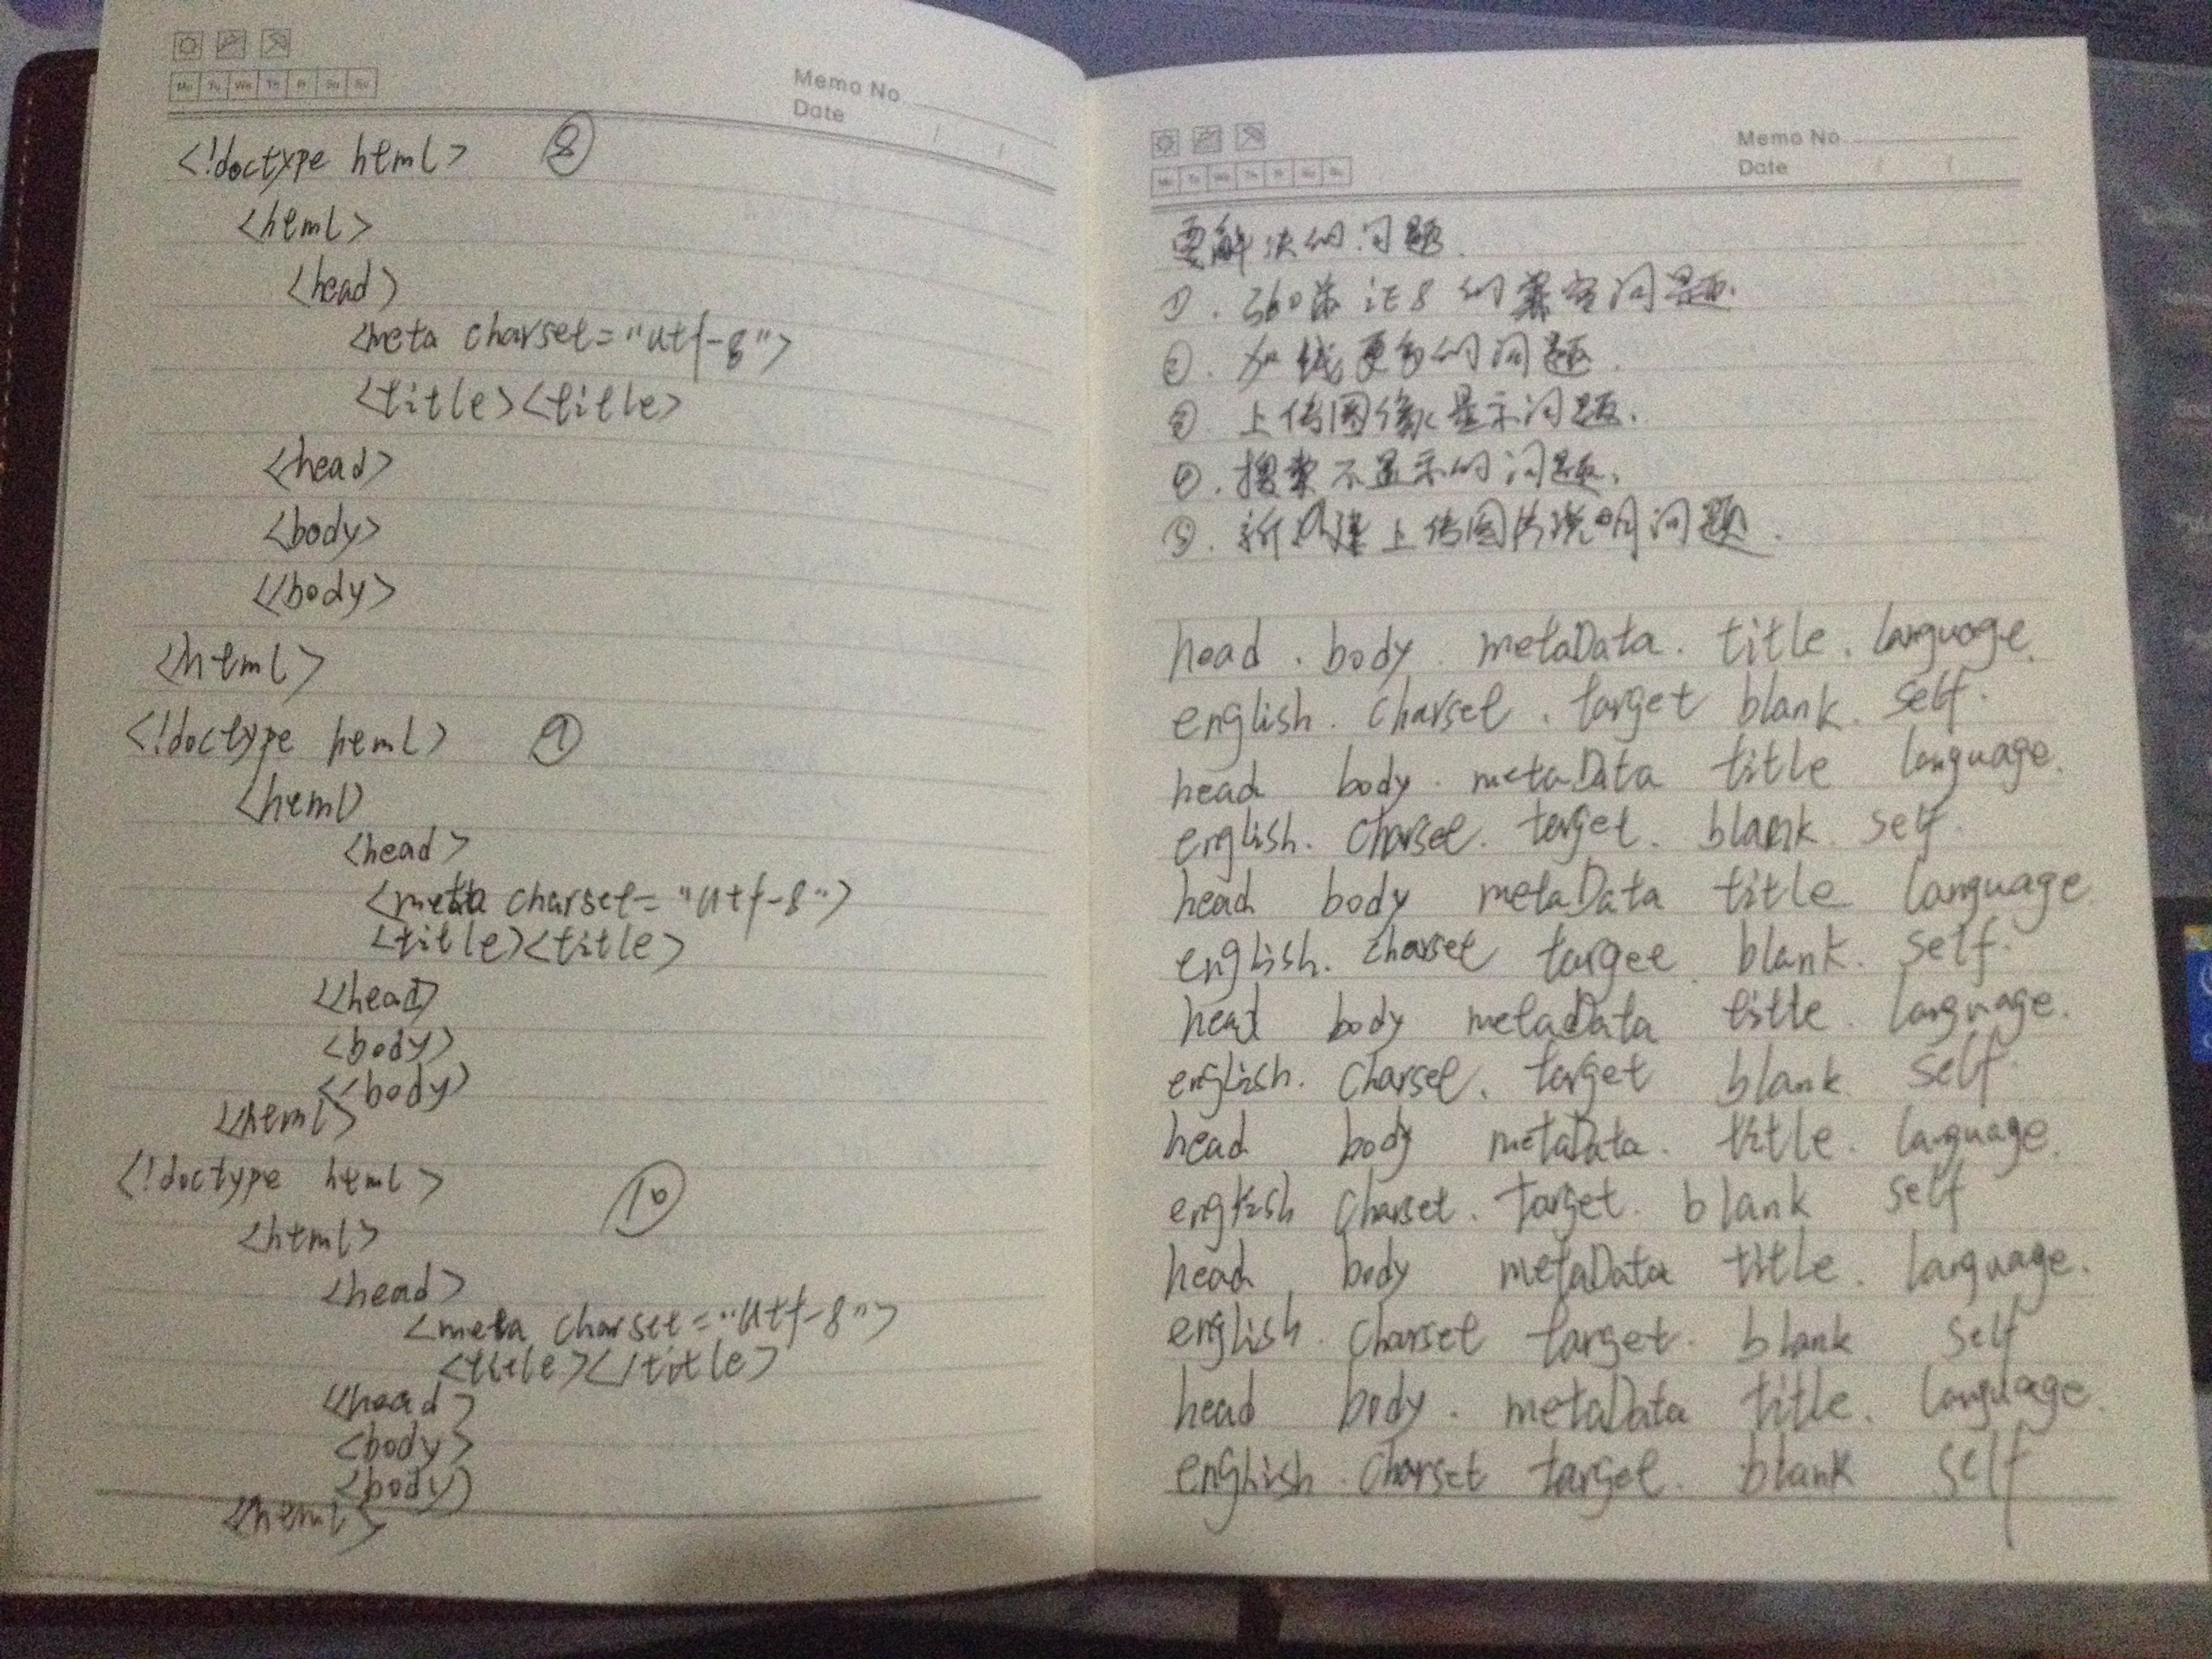 Mo Tu We Th Fr Sa Su
Memo No
Date / /
<!doctype html> ⑧
<html>
<head>
<meta charset="utf-8">
<title><title>
</head>
<body>
</body>
</html>
<!doctype html> ⑨
<html>
<head>
<meta charset="utf-8">
<title><title>
</head>
<body>
</body>
</html>
<!doctype html> ⑩
<html>
<head>
<meta charset="utf-8">
<title></title>
</head>
<body>
<body>
</html>
Mo Tu We Th Fr Sa Su
Memo No
Date / /
要解决的问题.
①. 360 IE8 的兼容问题.
②. 加线更多的问题.
③. 上传图像显示问题.
④. 搜索不显示的问题.
⑤. 新 建上传图片说明问题.
head . body . metaData . title . language.
english . charset . target blank . self .
head body . metaData title language.
english . charset . target . blank . self .
head body metaData title language.
english . charset target . blank . self .
head body metadData title . language.
english . charset . target blank self .
head body metaData . title . language.
english charset . target . blank self
head body metaData title . language.
english . charset target . blank self
head body . metaData title . language.
english . charset target . blank self